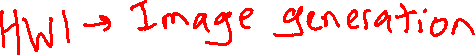 HW1 → Image generation